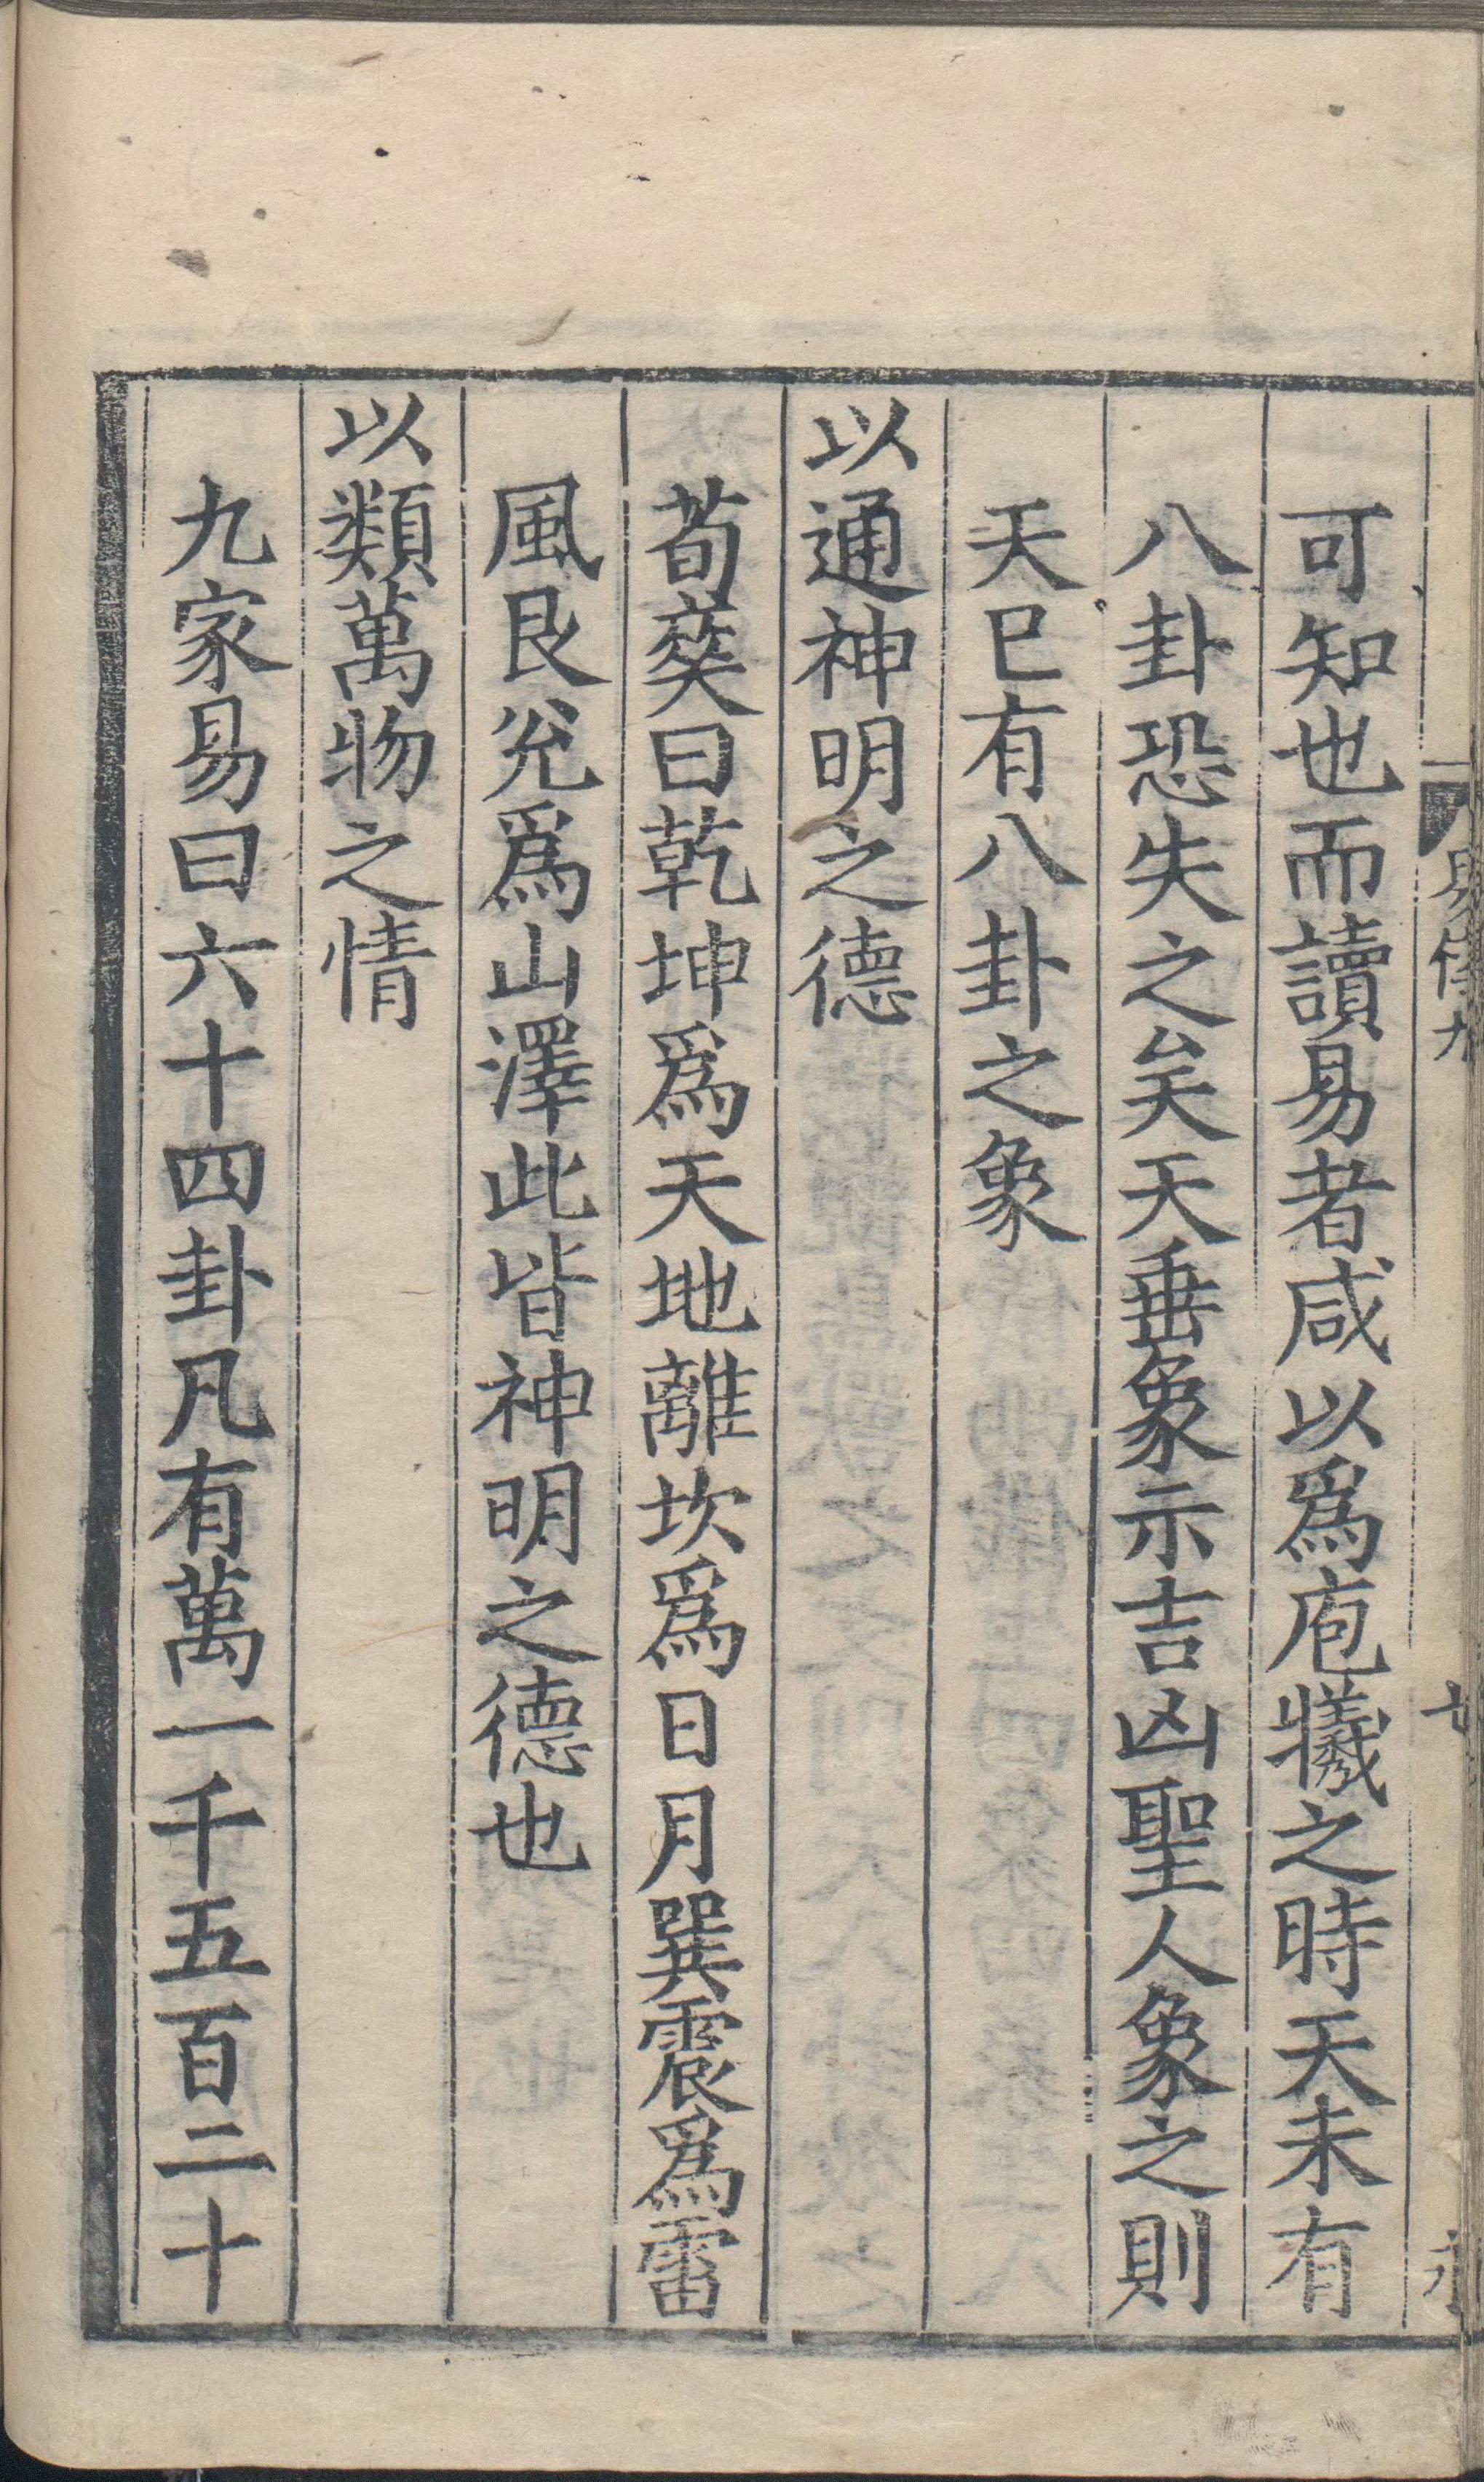 可知也而讀易者咸以爲庖犧之時天未有
八卦恐失之矣天垂象示吉凶聖人象之則
天巳有八卦之象
以通神明之德
荀蓂曰乾坤爲天地離坎爲日月巽震爲雷
風艮兊爲山澤此皆神明之德也
以類萬物之情
九家易曰六十四卦凡有萬一千五百二十